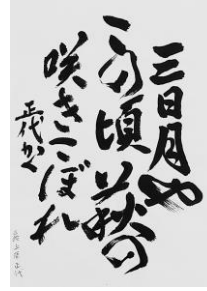 三日月や
この頃萩の
咲きこぼれ
正代かく